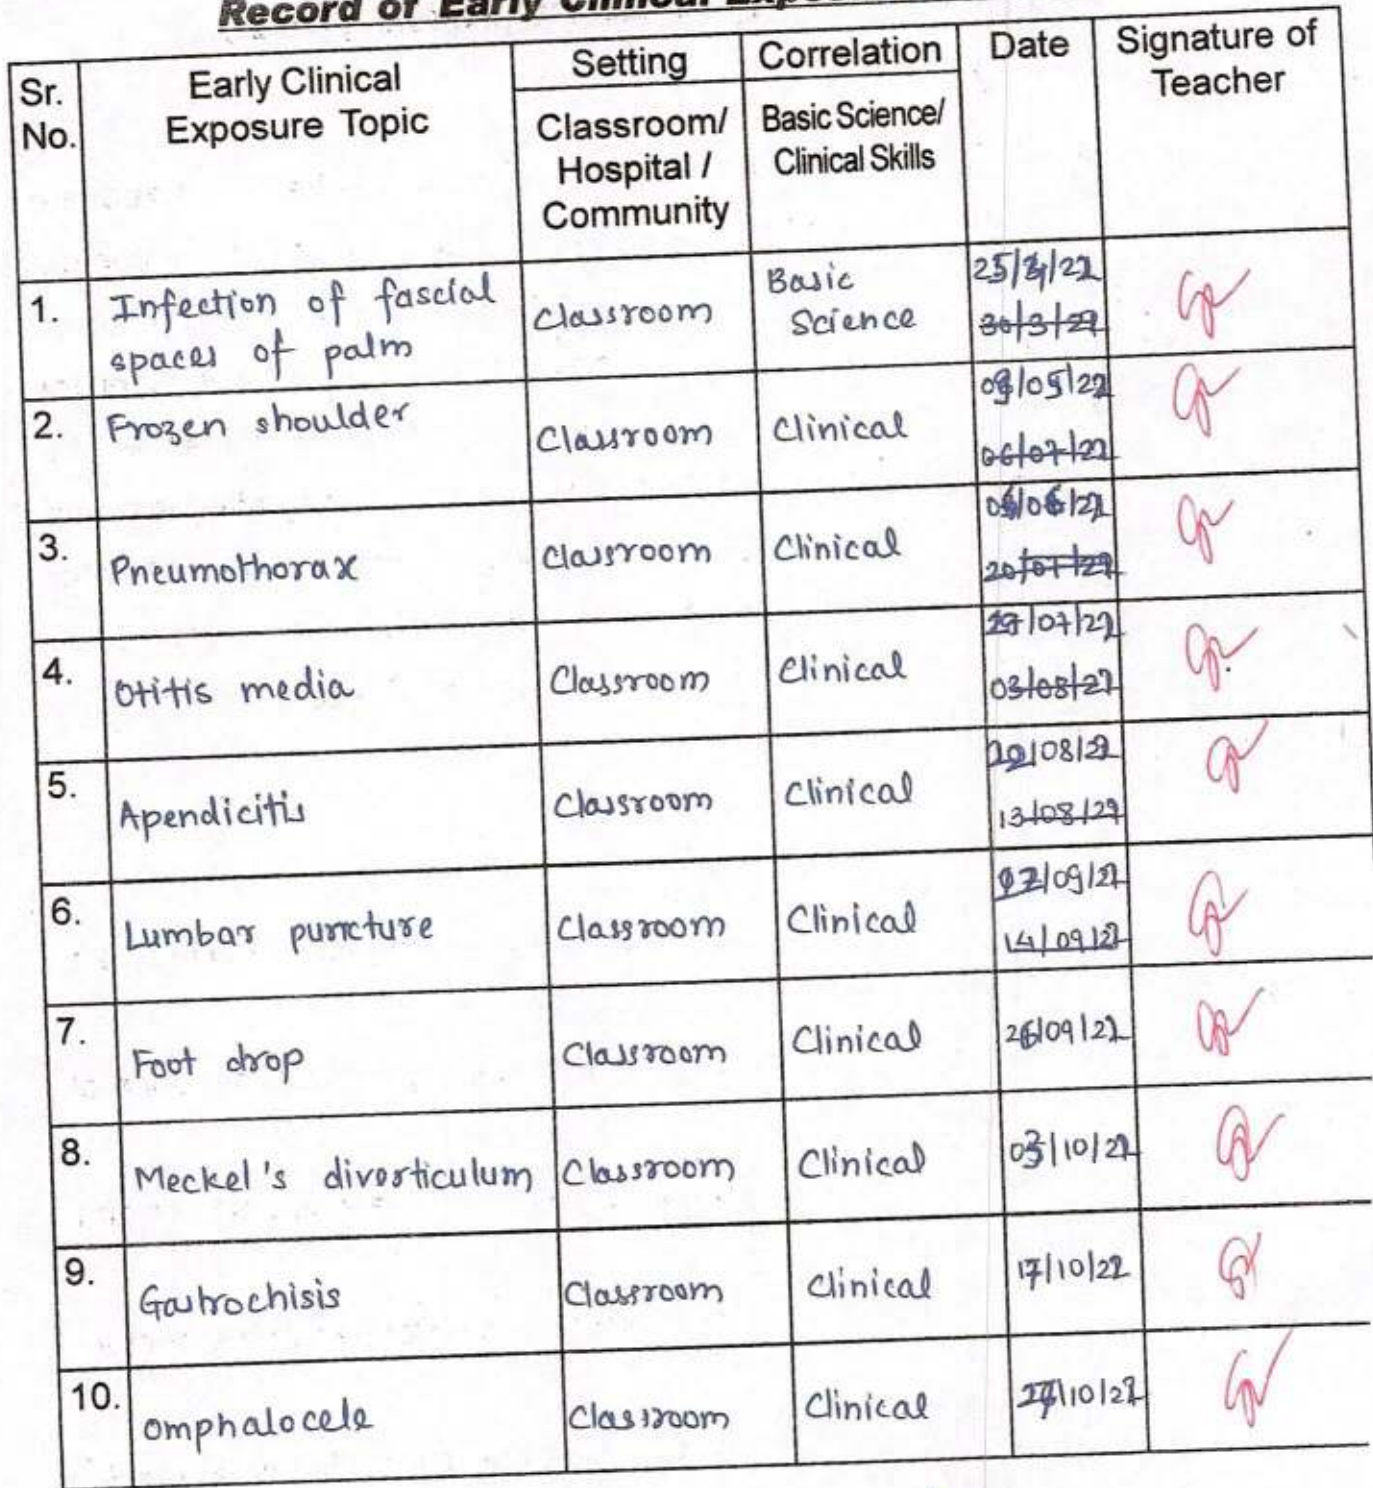 Record of Early Clinical
Sr. No.
Early Clinical Exposure Topic
Setting
Classroom/ Hospital / Community
Correlation
Basic Science/ Clinical Skills
Date
Signature of Teacher
1.
Infection of fascial
spaces of palm
Classroom
Basic
Science
30/3/22
2.
Frozen shoulder
Classroom
Clinical
06/07/22
3.
Pneumothorax
Classroom
Clinical
20/07/22
4.
Otitis media
Classroom
Clinical
03/08/22
5.
Apendicitis
Classroom
Clinical
13/08/22
6.
Lumbar puncture
Classroom
Clinical
14/09/22
7.
Foot drop
Classroom
Clinical
26/09/22
8.
Meckel's diverticulum
Classroom
Clinical
03/10/22
9.
Gastrochisis
Classroom
Clinical
17/10/22
10.
Omphalocele
Classroom
Clinical